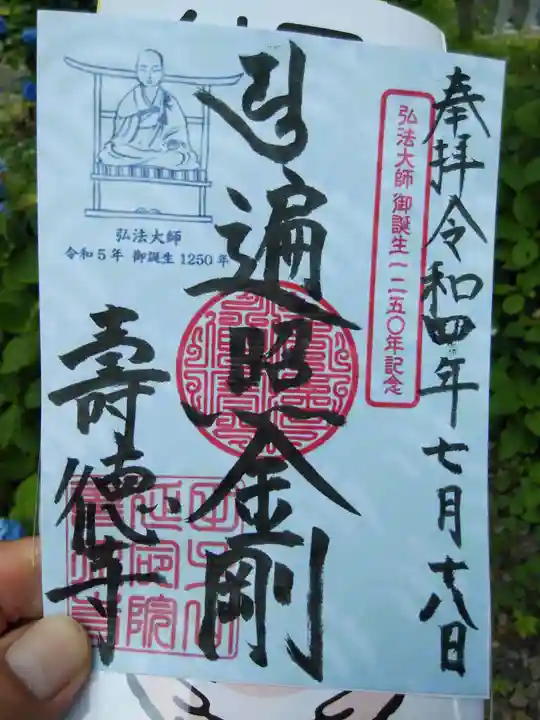 奉拝令和四年七月十八日
弘法大師 御誕生一二五〇年記念
遍照金剛
弘法大師
令和5年 御誕生1250年
壽德寺